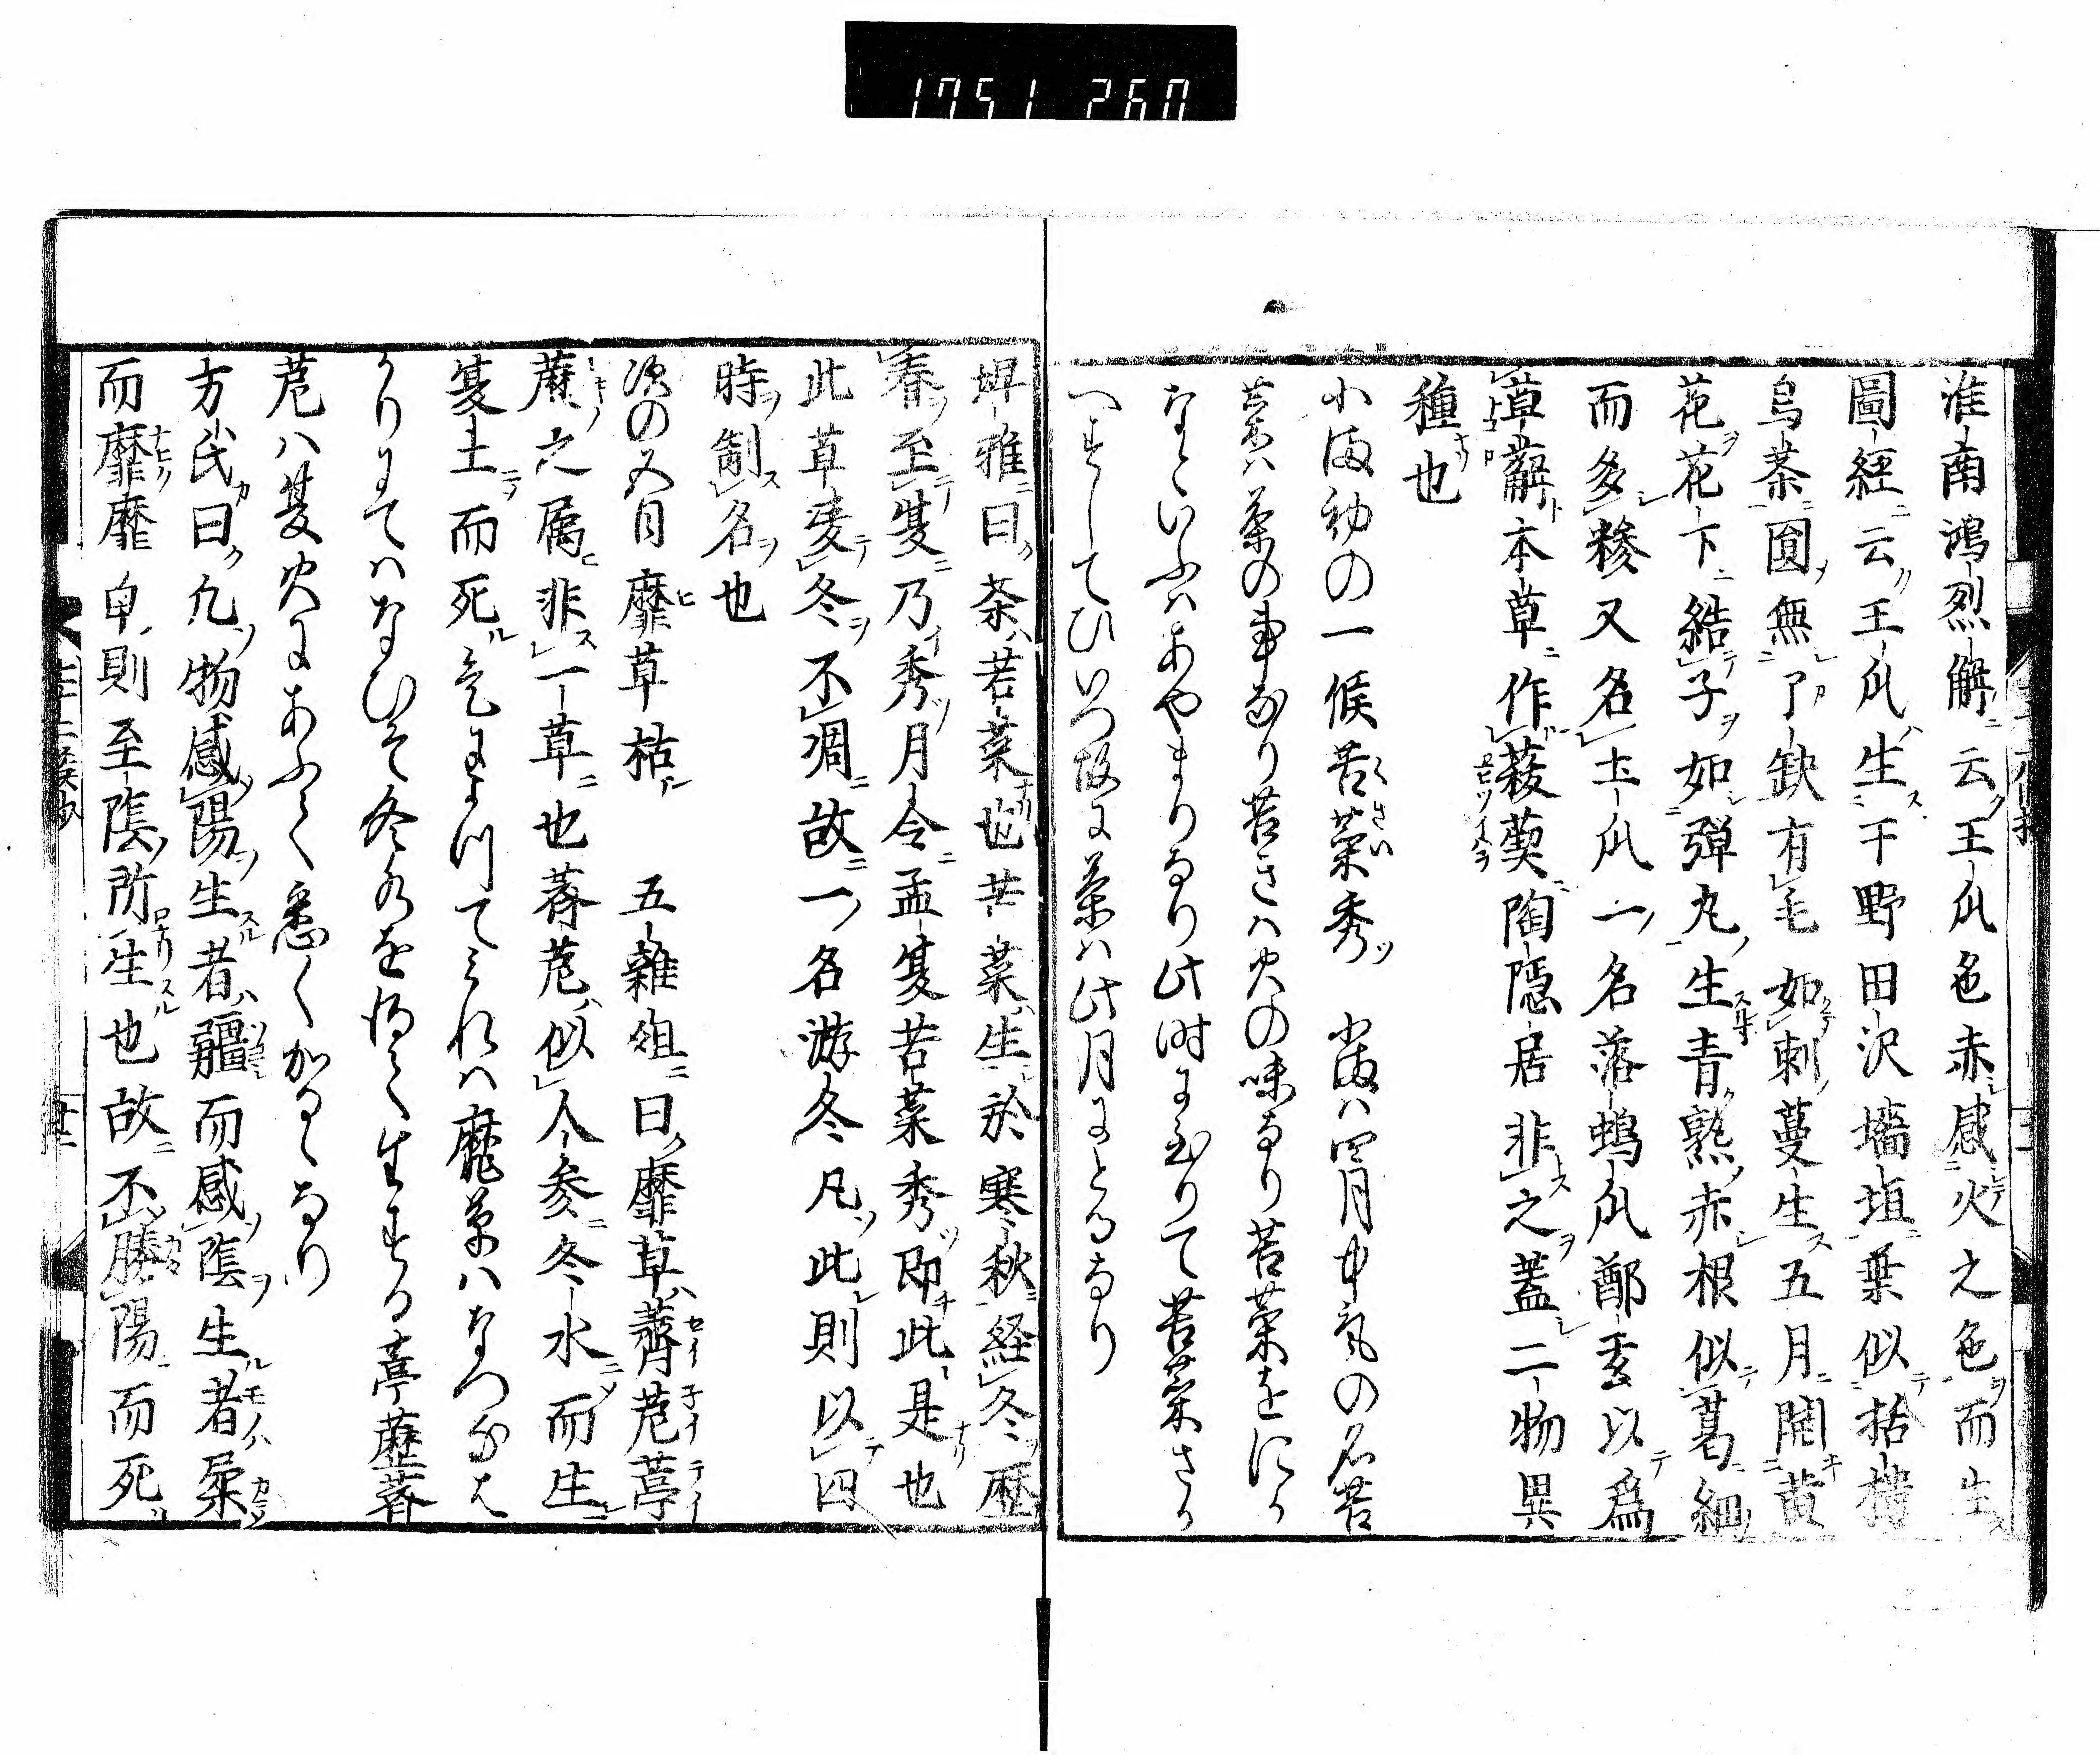 1751 260
淮南鴻烈解云王瓜色赤感火之色而生
圖経云王瓜生干野田沢墻垣葉似栝樓
烏荼圓無了缺有毛如刺蔓生五月開黄
花花下結子如弾丸生青熟赤根似葛細
而多糝又名土瓜一名落鴇瓜鄭玄以為
草薢本草作菝葜陶隠居非之蓋二物異
種也
小満初の一候苦菜秀 小満ハ四月中氣の名苦
菜ハ菜の事なり苦きハ火の味なり苦菜をにか
なといふハあやまりなり此時に至りて苦菜さか
へすしてひいつ故に菜ハ此月にとるなり
埤雅曰荼苦菜也苦菜生於寒秋経冬歴
春至夏乃秀月令孟夏苦菜秀即此是也
此草凌冬不凋故一名游冬凡此則以四
時制名也
次の五日靡草枯 五雜俎曰靡草薺苨葶
蔴之属非一草也薺苨似人参冬水而生
夏土而死氣によつてみれハ靡草ハなつなは
かりにてハなひそ冬水を得て生する葶藶薺
苨ハ夏火にあふて悉く加るゝなり
方氏曰凡物感陽生者彊而感陰生者柔
而靡靡草則至陰所生也故不勝陽而死